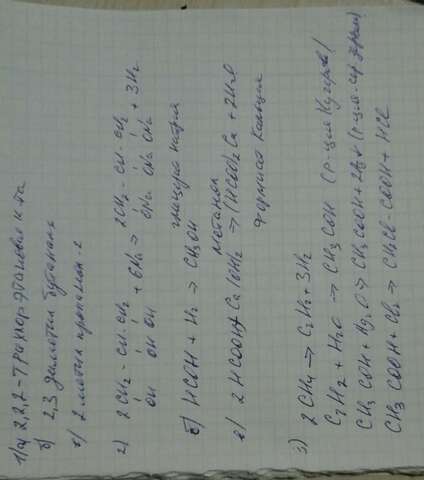 1) а) 2,2,2-трихлорэтановая к-та
б) 2,3 диметил бутаналь
в) 2 метил пропанол-2
2) 2CH2 - CH - CH2 + 6Na → 2CH2 - CH - CH2 + 3H2
OH OH OH ONa ONa ONa
глицерат натрия
б) HCOH + H2 → CH3OH
метанол
в) 2HCOOH + Ca(OH)2 → (HCOO)2Ca + 2H2O
формиат кальция
3) 2CH4 → C2H2 + 3H2
C2H2 + H2O → CH3COH (р-ция Кучерова)
CH3COH + Ag2O → CH3COOH + 2Ag↓ (р-ция сер. зеркала)
CH3COOH + Cl2 → CH2Cl - COOH + HCl